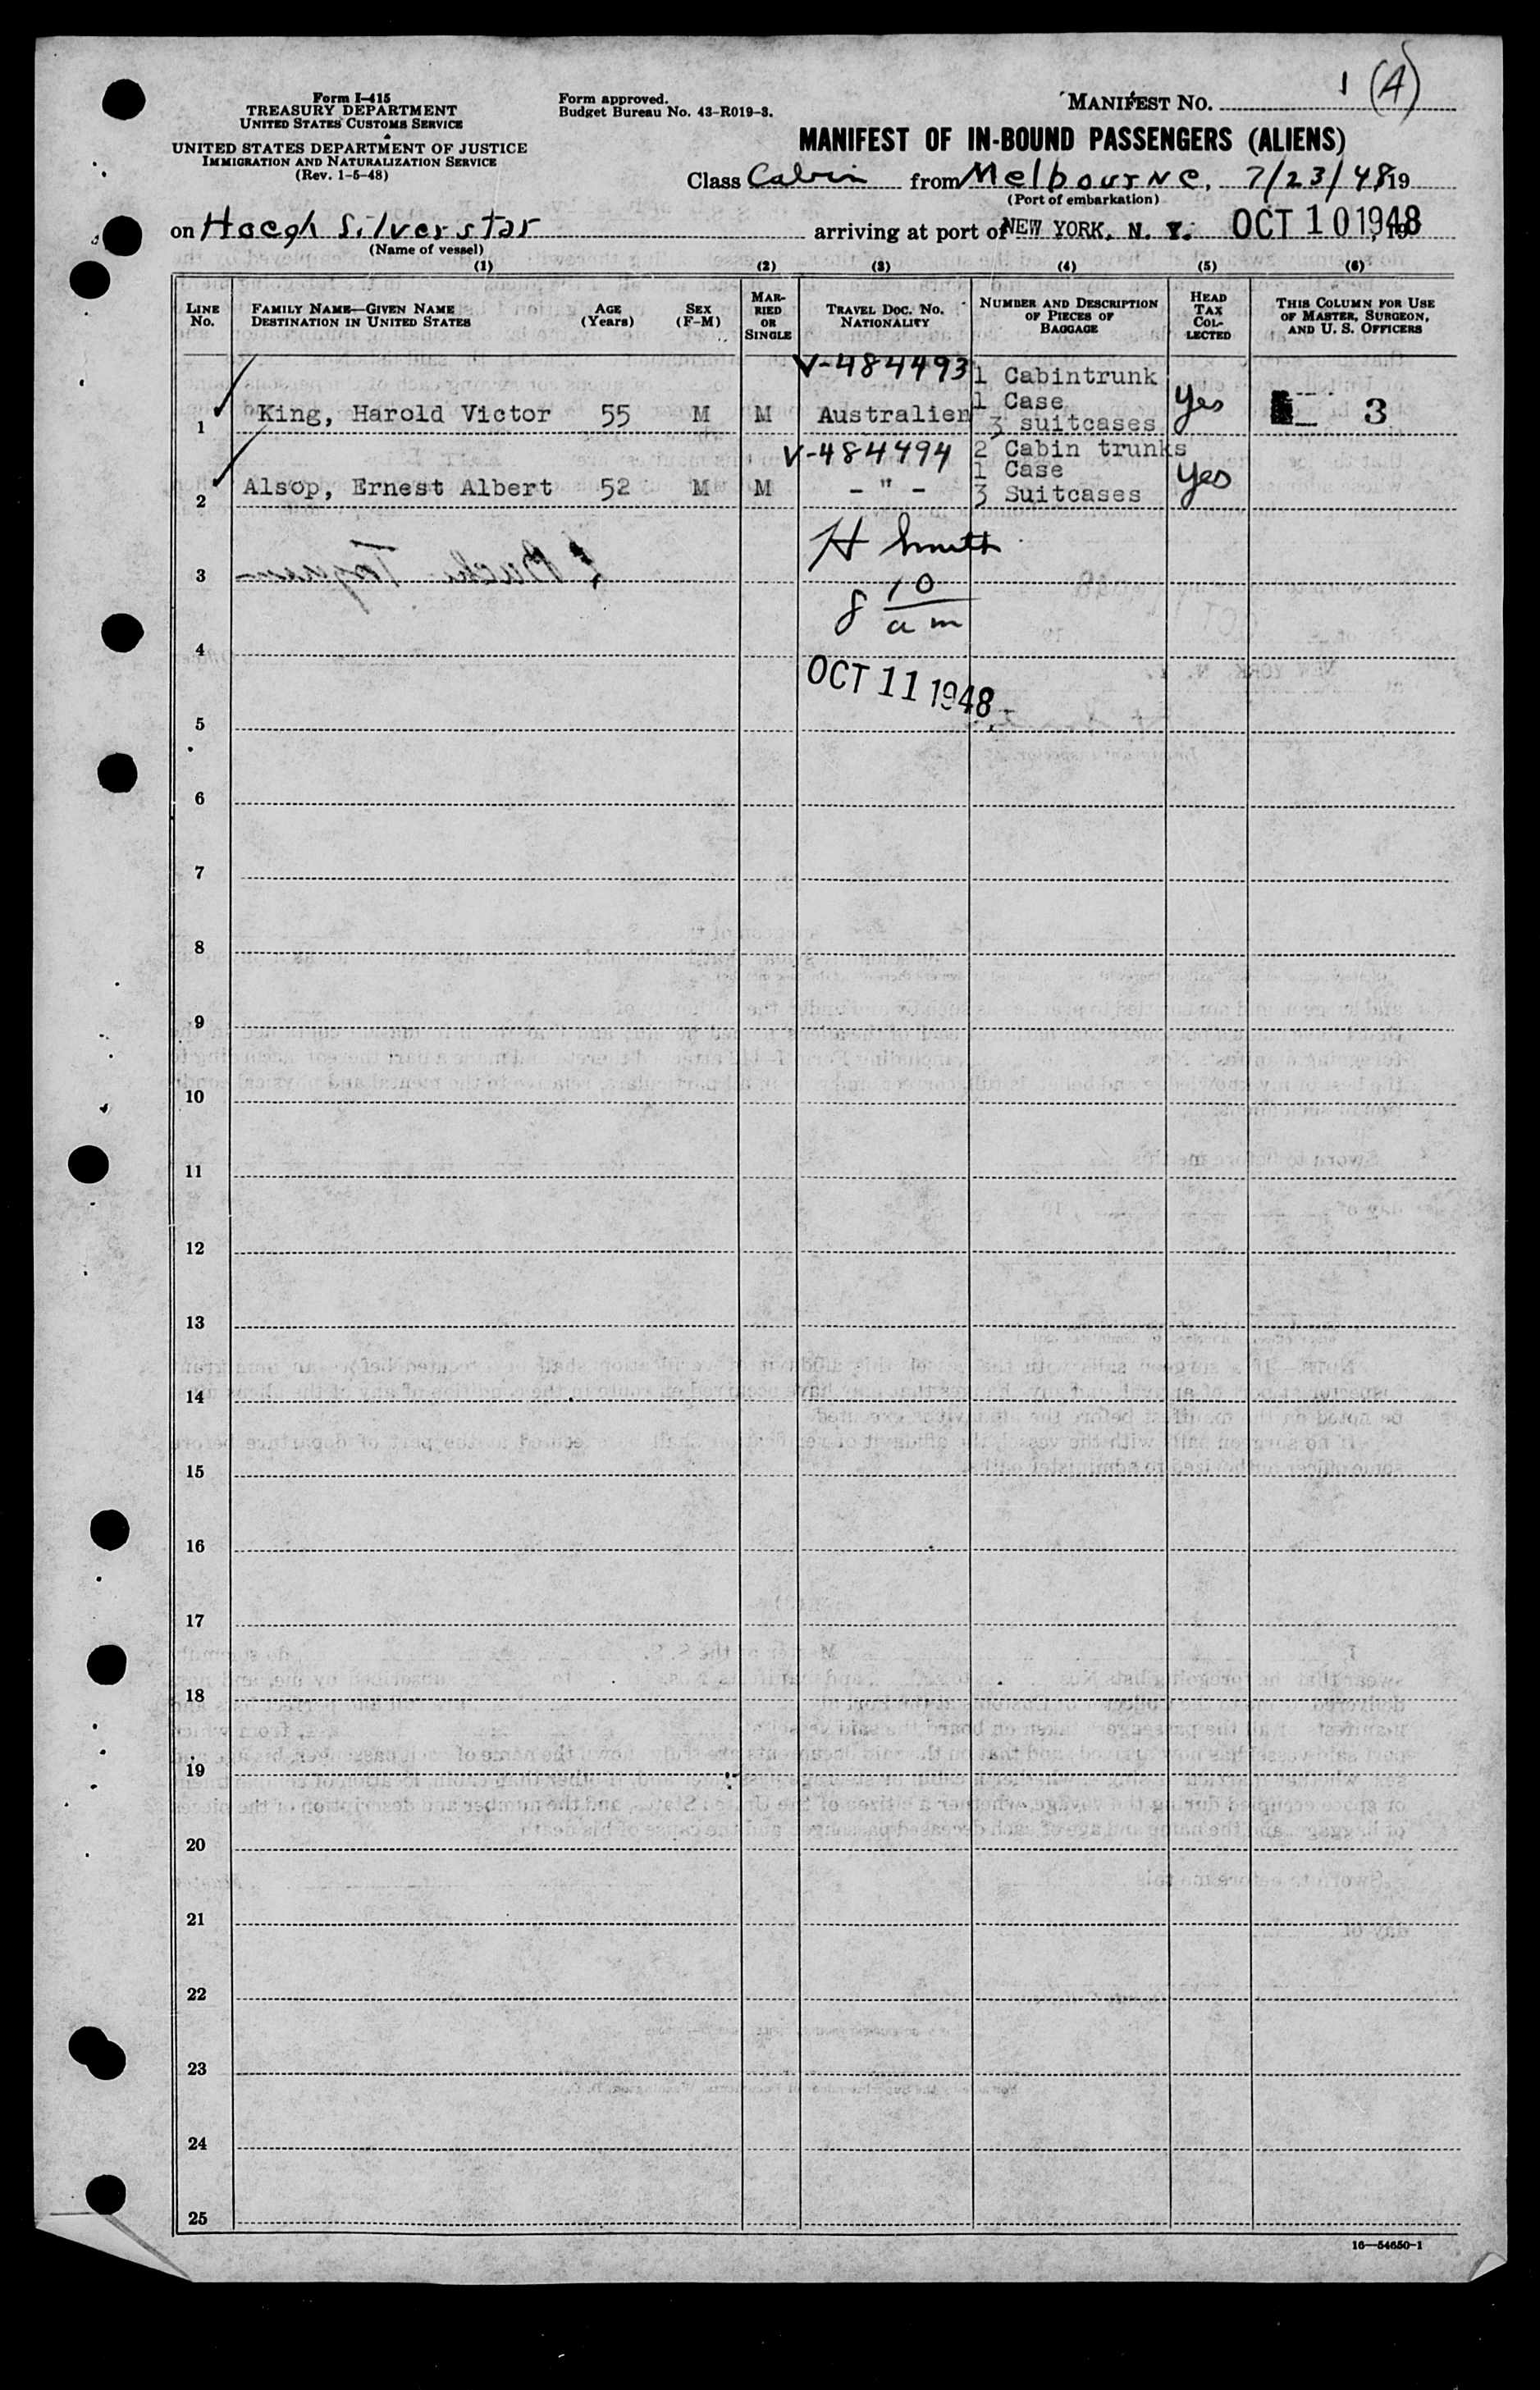 Form I-415
TREASURY DEPARTMENT
UNITED STATES CUSTOMS SERVICE
UNITED STATES DEPARTMENT OF JUSTICE
IMMIGRATION AND NATURALIZATION SERVICE
(Rev. 1-5-48)
Form approved.
Budget Bureau No. 43-R019-3.
MANIFEST NO. 1 (A)
MANIFEST OF IN-BOUND PASSENGERS (ALIENS)
Class Cabin from Melbourne, 7/23/48 19
(Port of embarkation)
on Hoegh Silverstar arriving at port of NEW YORK, N. Y. OCT 10 1948
(Name of vessel)
(1) (2) (3) (4) (5) (6)
LINE No.
FAMILY NAME—GIVEN NAME
DESTINATION IN UNITED STATES
AGE (Years)
SEX (F-M)
MARRIED OR SINGLE
TRAVEL DOC. NO.
NATIONALITY
NUMBER AND DESCRIPTION OF PIECES OF BAGGAGE
HEAD TAX COLLECTED
THIS COLUMN FOR USE OF MASTER, SURGEON, AND U. S. OFFICERS
V-484493 1 Cabintrunk
1 Case
1 King, Harold Victor 55 M M Australien 3 suitcases Yes 3
V-484494 2 Cabin trunks
1 Case
2 Alsop, Ernest Albert 52 M M - " - 3 Suitcases Yes
H Smith
3
8 10
a m
4
OCT 11 1948
5
6
7
8
9
10
11
12
13
14
15
16
17
18
19
20
21
22
23
24
25
16—54650-1